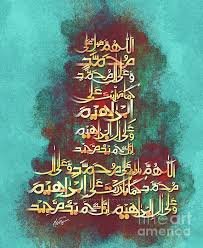 اللهم صل على
محمد
وعلى ال محمد
كما صليت على
ابراهيم
وعلى ال ابراهيم
انك حميد مجيد
اللهم
على محمد وعلى
ال محمد كما
على ابراهيم
وعلى ال ابراهيم
انك حميد مجيد
fine art
america